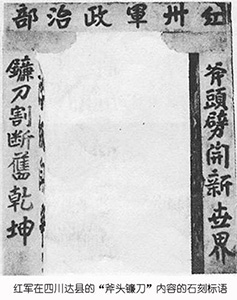 红卅軍政治部
斧頭劈開新世界
鐮刀割斷舊乾坤
红军在四川达县的“斧头镰刀”内容的石刻标语